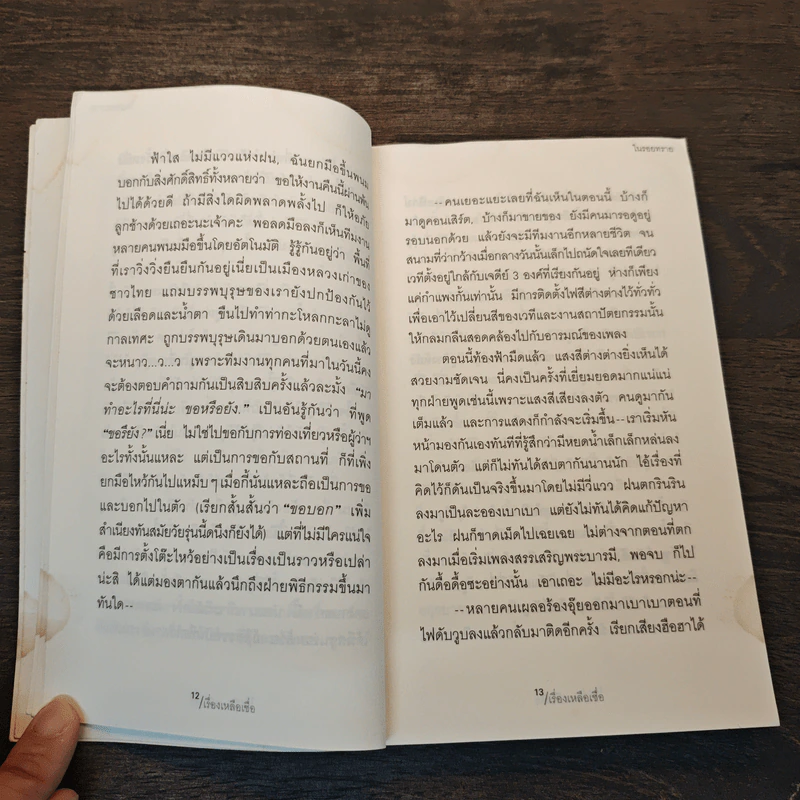 ฟ้าใส ไม่มีแววแห่งฝน, ฉันยกมือขึ้นพนม
บอกกับสิ่งศักดิ์สิทธิ์ทั้งหลายว่า ขอให้งานคืนนี้ผ่านพ้น
ไปได้ด้วยดี ถ้ามีสิ่งใดผิดพลาดพลั้งไป ก็ให้อภัย
ลูกช้างด้วยเถอะนะเจ้าคะ พอลดมือลงก็เห็นทีมงาน
หลายคนพนมมือขึ้นโดยอัตโนมัติ รู้รู้กันอยู่ว่า พื้นที่
ที่เราวิ่งวิ่งยืนยืนกันอยู่เนี่ยเป็นเมืองหลวงเก่าของ
ชาวไทย แถมบรรพบุรุษของเรายังปกป้องกันไว้
ด้วยเลือดและน้ำตา ขืนไปทำท่ากะโหลกกะลาไม่ดู
กาลเทศะ ถูกบรรพบุรุษเดินมาบอกด้วยตนเองแล้ว
จะหนาว...ว...ว เพราะทีมงานทุกคนที่มาในวันนี้คง
จะต้องตอบคำถามกันเป็นสิบสิบครั้งแล้วละมั้ง “มา
ทำอะไรที่นี่น่ะ ขอหรือยัง.” เป็นอันรู้กันว่า ที่พูด
“ขอรึยัง?” เนี่ย ไม่ใช่ไปขอกับการท่องเที่ยวหรือผู้ว่าฯ
อะไรทั้งนั้นแหละ แต่เป็นการขอกับสถานที่ ก็ที่เพิ่ง
ยกมือไหว้กันไปแหม็บๆ เมื่อกี้นั่นแหละถือเป็นการขอ
และบอกไปในตัว (เรียกสั้นสั้นว่า “ขอบอก” เพิ่ม
สำเนียงทันสมัยวัยรุ่นนี้ดนึงก็ยังได้) แต่ที่ไม่มีใครแน่ใจ
คือมีการตั้งโต๊ะไหว้อย่างเป็นเรื่องเป็นราวหรือเปล่า
น่ะสิ ได้แต่มองตากันแล้วนึกถึงฝ่ายพิธีกรรมขึ้นมา
ทันใด--
12/เรื่องเหลือเชื่อ
ในรอยทราย
--คนเยอะแยะเลยที่ฉันเห็นในตอนนี้ บ้างก็
มาดูคอนเสิร์ต, บ้างก็มาขายของ ยังมีคนมารอดูอยู่
รอบนอกด้วย แล้วยังจะมีทีมงานอีกหลายชีวิต จน
สนามที่ว่ากว้างเมื่อกลางวันนั้นเล็กไปถนัดใจเลยทีเดียว
เวทีตั้งอยู่ใกล้กับเจดีย์ 3 องค์ที่เรียงกันอยู่ ห่างก็เพียง
แค่กำแพงกั้นเท่านั้น มีการติดตั้งไฟสีต่างต่างไว้ทั่วทั่ว
เพื่อเอาไว้เปลี่ยนสีของเวทีและงานสถาปัตยกรรมนั้น
ให้กลมกลืนสอดคล้องไปกับอารมณ์ของเพลง
ตอนนี้ท้องฟ้ามืดแล้ว แสงสีต่างต่างยิ่งเห็นได้
สวยงามชัดเจน นี่คงเป็นครั้งที่เยี่ยมยอดมากแน่แน่
ทุกฝ่ายพูดเช่นนี้เพราะแสงสีเสียงลงตัว คนดูมากัน
เต็มแล้ว และการแสดงก็กำลังจะเริ่มขึ้น--เราเริ่มหัน
หน้ามองกันเองทันทีที่รู้สึกว่ามีหยดน้ำเล็กเล็กหล่นลง
มาโดนตัว แต่ก็ไม่ทันได้สบตากันนานนัก ไอ้เรื่องที่
คิดไว้ก็ดันเป็นจริงขึ้นมาโดยไม่มีวี่แวว ฝนตกรินริน
ลงมาเป็นละอองเบาเบา แต่ยังไม่ทันได้คิดแก้ปัญหา
อะไร ฝนก็ขาดเม็ดไปเฉยเฉย ไม่ต่างจากตอนที่ตก
ลงมาเมื่อเริ่มเพลงสรรเสริญพระบารมี, พอจบ ก็ไป
กันดื้อดื้อซะอย่างนั้น เอาเถอะ ไม่มีอะไรหรอกน่ะ--
--หลายคนเผลอร้องอุ๊ยออกมาเบาเบาตอนที่
ไฟดับวูบลงแล้วกลับมาติดอีกครั้ง เรียกเสียงฮือฮาได้
13/เรื่องเหลือเชื่อ